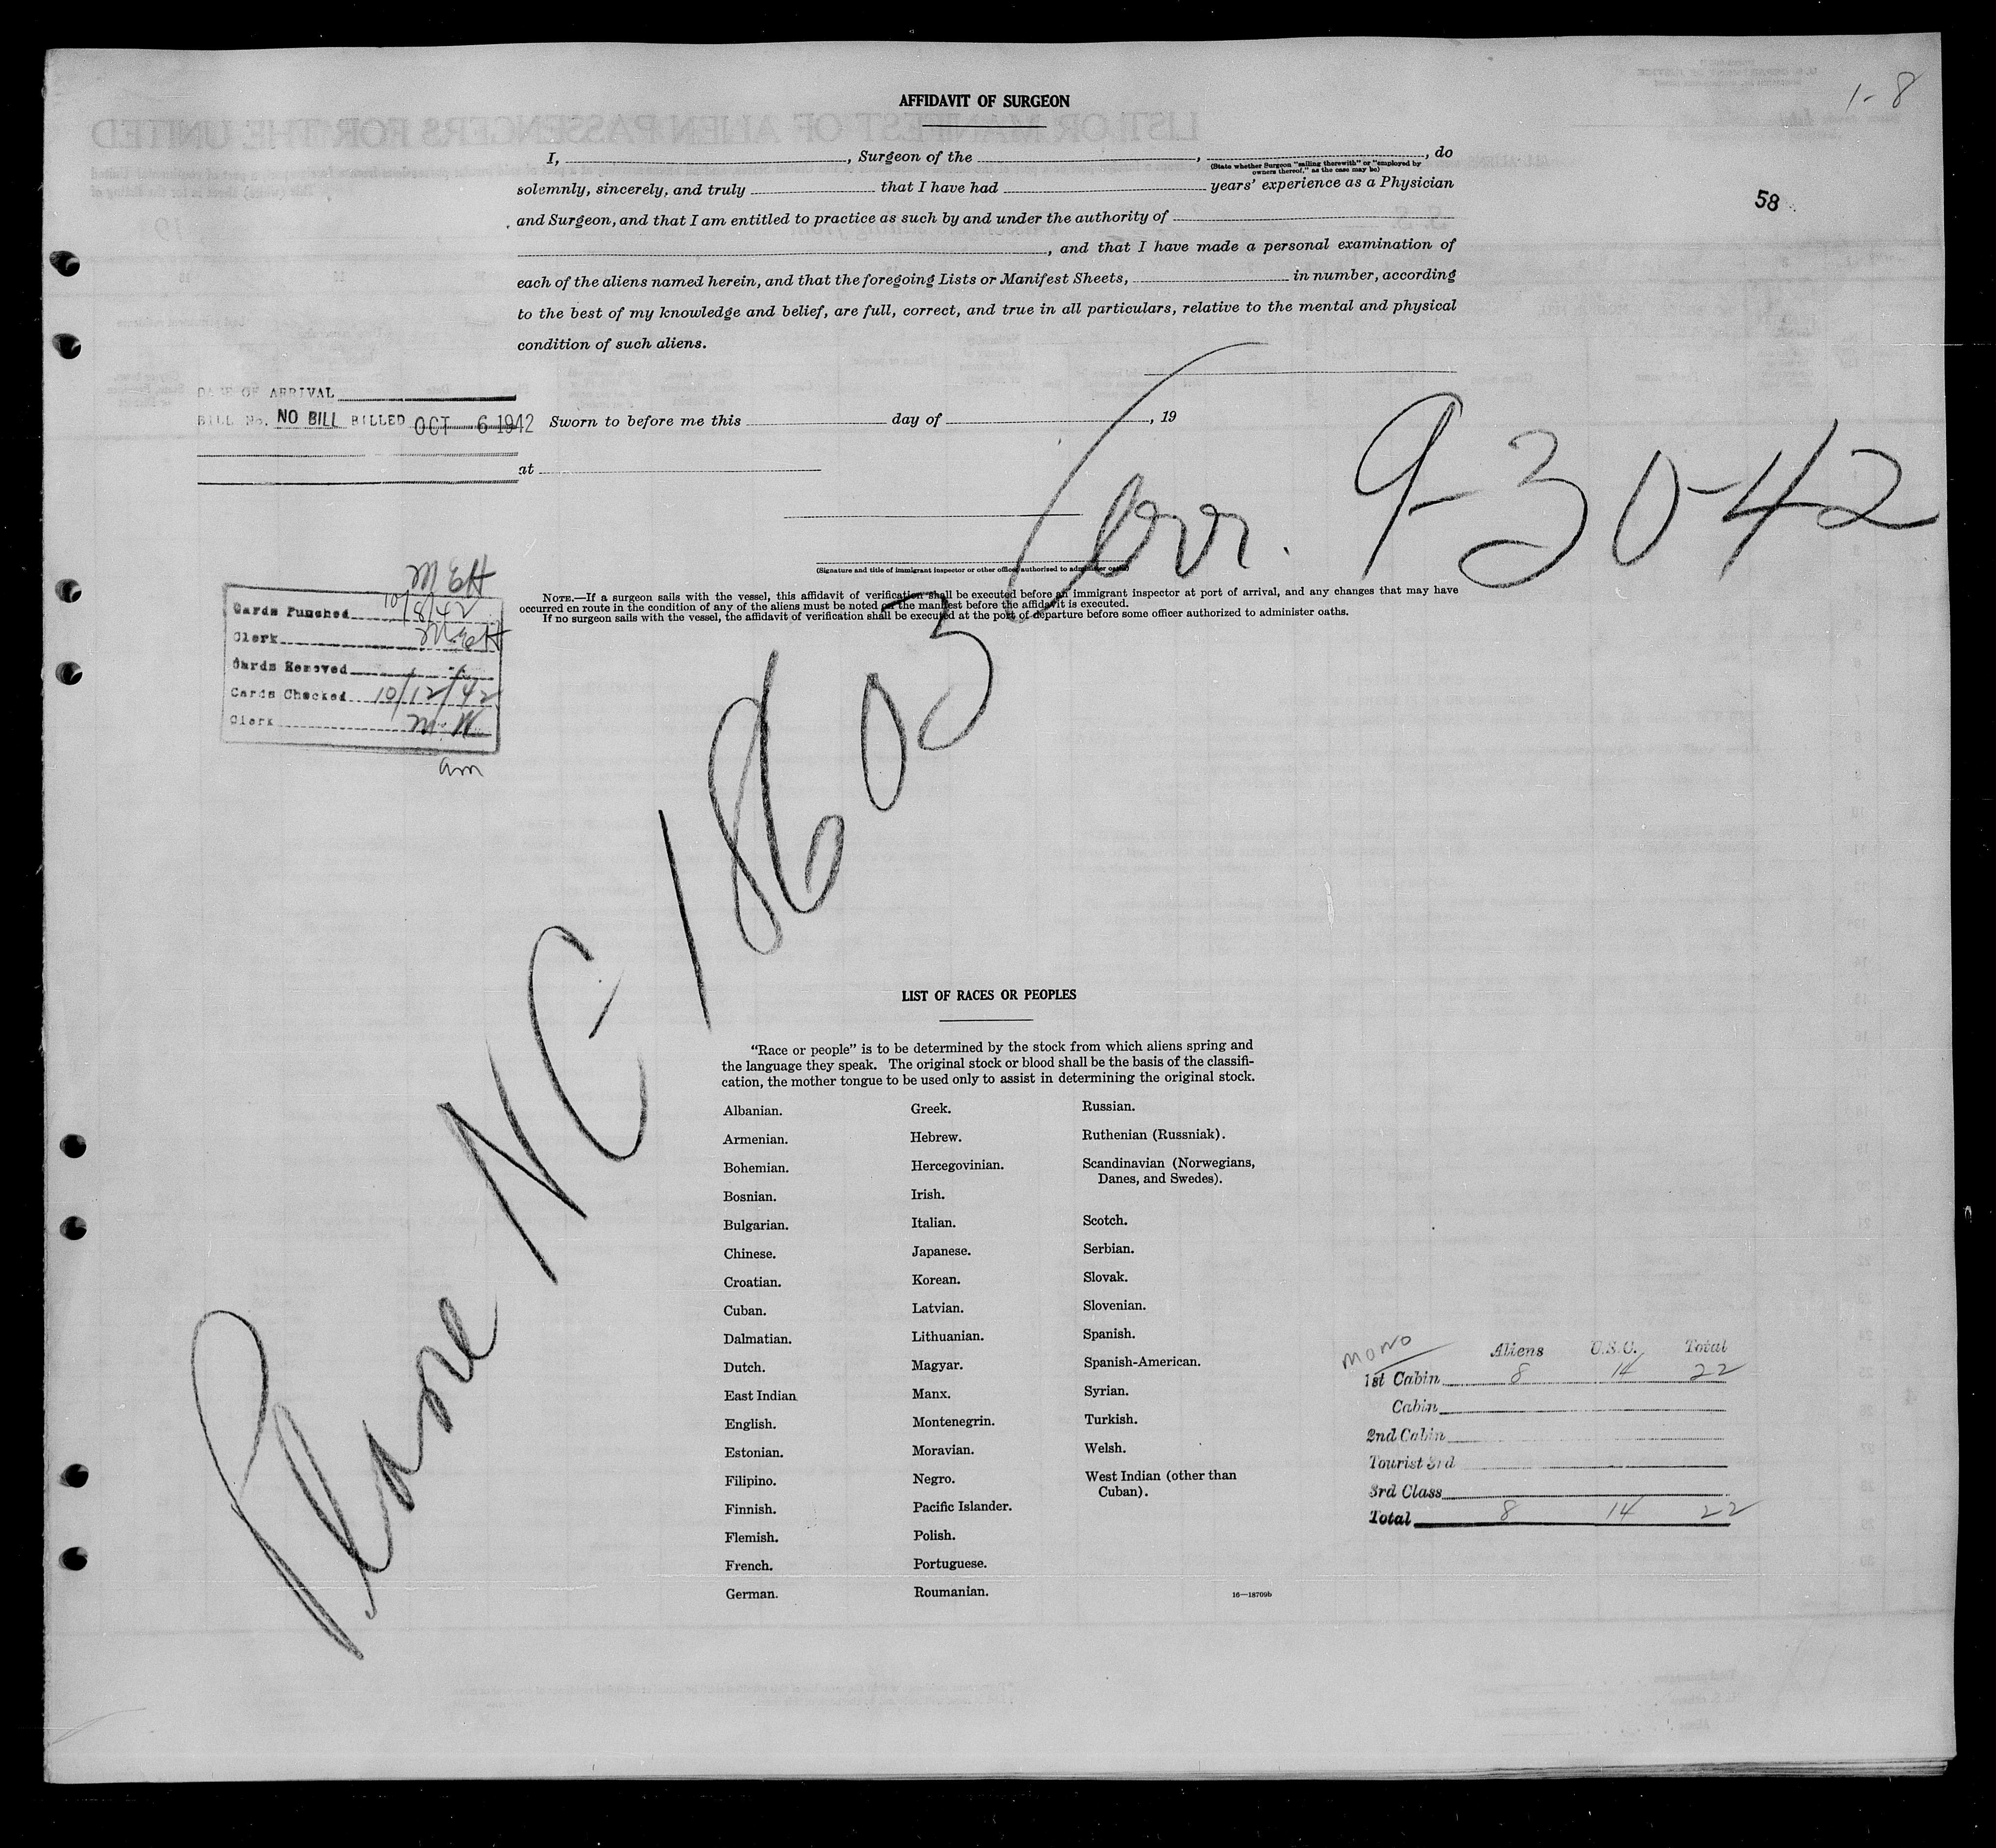 AFFIDAVIT OF SURGEON
1-8
58
I, , Surgeon of the , , do
(State whether Surgeon "sailing therewith" or "employed by
owners thereof," as the case may be)
solemnly, sincerely, and truly that I have had years' experience as a Physician
and Surgeon, and that I am entitled to practice as such by and under the authority of
, and that I have made a personal examination of
each of the aliens named herein, and that the foregoing Lists or Manifest Sheets, in number, according
to the best of my knowledge and belief, are full, correct, and true in all particulars, relative to the mental and physical
condition of such aliens.
DATE OF ARRIVAL
BILL No. NO BILL BILLED OCT 6 1942
Sworn to before me this day of , 19
at
arr. 9-30-42
(Signature and title of immigrant inspector or other officer authorized to administer oaths)
NOTE.—If a surgeon sails with the vessel, this affidavit of verification shall be executed before an immigrant inspector at port of arrival, and any changes that may have
occurred en route in the condition of any of the aliens must be noted on the manifest before the affidavit is executed.
If no surgeon sails with the vessel, the affidavit of verification shall be executed at the port of departure before some officer authorized to administer oaths.
MEH
Cards Punched 10/8/42
Clerk MEH
Cards Removed
Cards Checked 10/12/42
Clerk M.W.
am
Plane NC-18603
LIST OF RACES OR PEOPLES
"Race or people" is to be determined by the stock from which aliens spring and
the language they speak. The original stock or blood shall be the basis of the classifi-
cation, the mother tongue to be used only to assist in determining the original stock.
Albanian.
Armenian.
Bohemian.
Bosnian.
Bulgarian.
Chinese.
Croatian.
Cuban.
Dalmatian.
Dutch.
East Indian
English.
Estonian.
Filipino.
Finnish.
Flemish.
French.
German.
Greek.
Hebrew.
Hercegovinian.
Irish.
Italian.
Japanese.
Korean.
Latvian.
Lithuanian.
Magyar.
Manx.
Montenegrin.
Moravian.
Negro.
Pacific Islander.
Polish.
Portuguese.
Roumanian.
Russian.
Ruthenian (Russniak).
Scandinavian (Norwegians,
Danes, and Swedes).
Scotch.
Serbian.
Slovak.
Slovenian.
Spanish.
Spanish-American.
Syrian.
Turkish.
Welsh.
West Indian (other than
Cuban).
16—18709b
MONO
Aliens U.S.C. Total
1st Cabin 8 14 22
Cabin
2nd Cabin
Tourist 3rd
3rd Class
Total 8 14 22